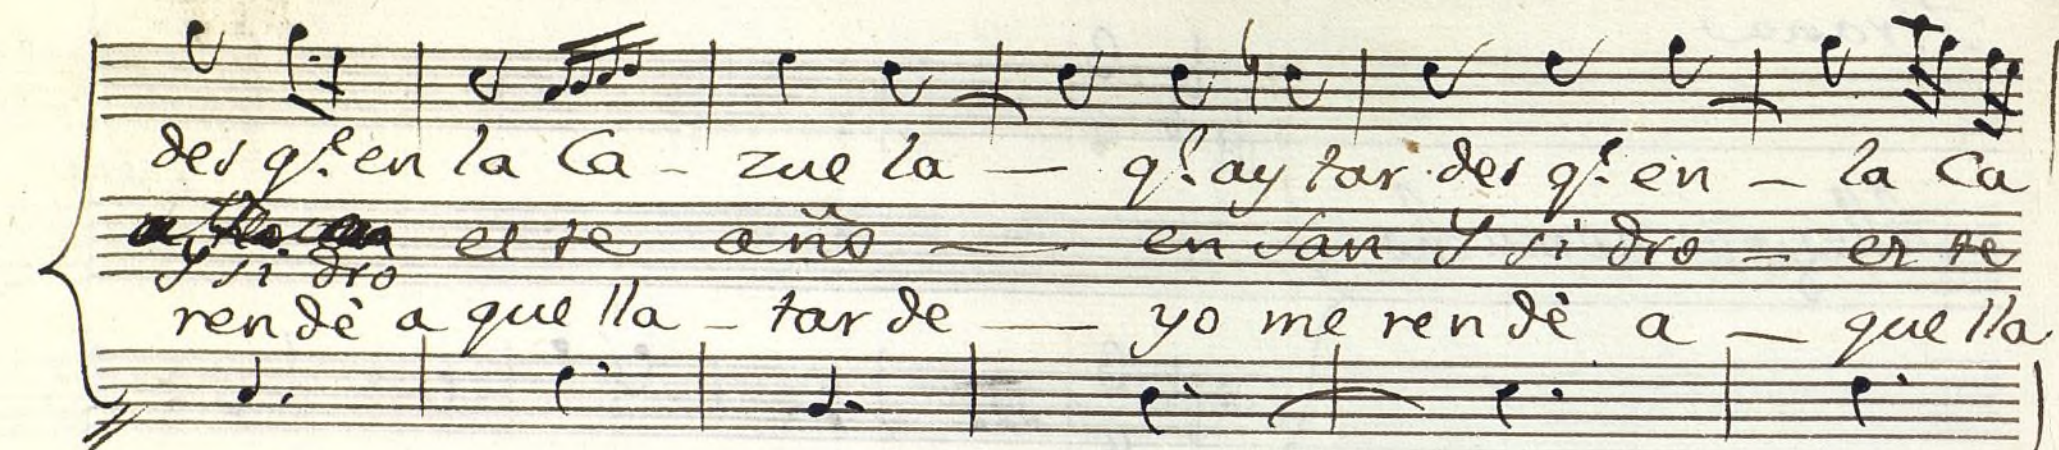 des q.e en la Ca - zue la — q.e ay tar des q.e en - la Ca
es te año — en San Ysi dro - es te
Ysi dro
rendè a que lla - tar de — yo me rendè a - que lla